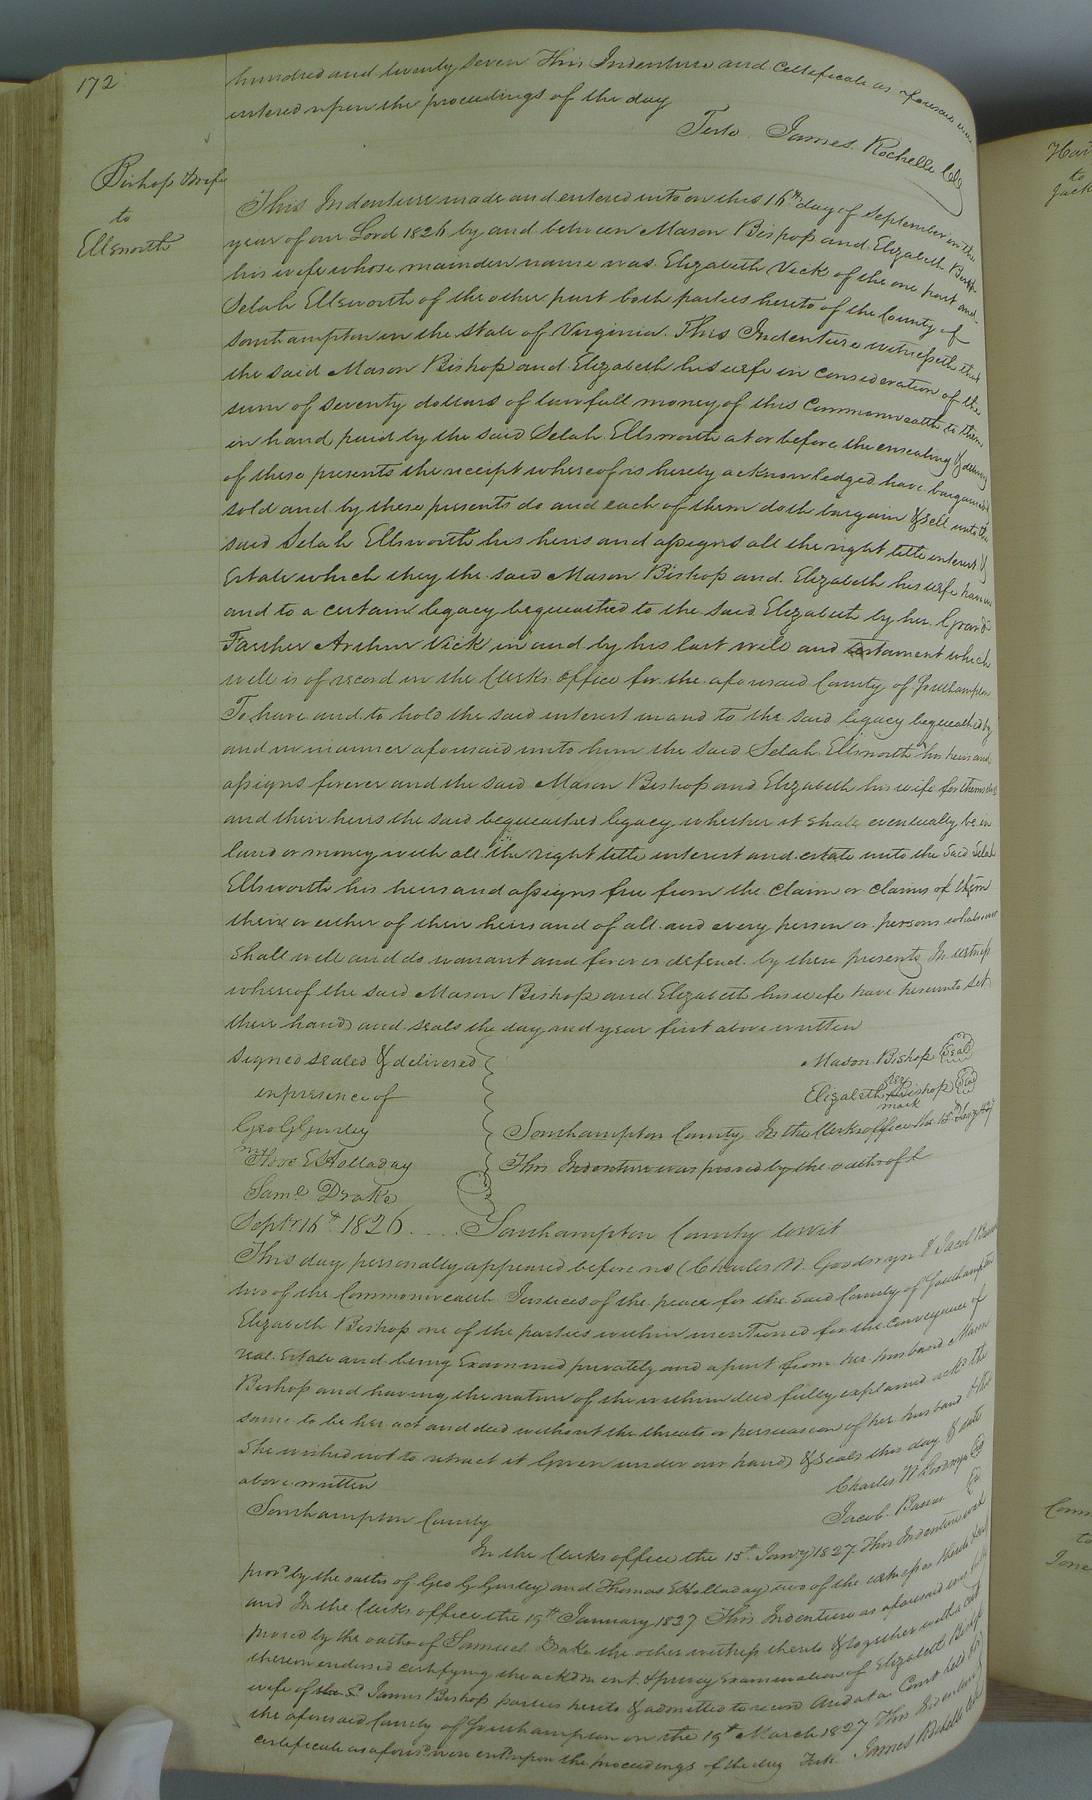 172
hundred and twenty seven This Indenture and Certificate as aforesaid were
entered upon the proceedings of the day
Teste James Rochelle Clk
Bishop & wife
to
Ellsworth
This Indenture made and entered into on this 16th day of September in the
year of our Lord 1826 by and between Mason Bishop and Elizabeth
his wife whose mainden name was Elizabeth Vick of the one part and
Selah Ellsworth of the other part both parties hereto of the County of
Southampton in the State of Virginia. This Indenture witnesseth that
the said Mason Bishop and Elizabeth his wife in consideration of the
sum of seventy dollars of lawfull money of this Commonwealth to them
in hand paid by the said Selah Ellsworth at or before the ensealing & delivery
of these presents the receipt whereof is hereby acknowledged have bargained
sold and by these presents do and each of them doth bargain & sell unto the
said Selah Ellsworth his heirs and assigns all the right title interest &
Estate which they the said Mason Bishop and Elizabeth his wife have in
and to a certain legacy bequeathed to the said Elizabeth by her Grand
Farther Arthur Vick in and by his last will and testament which
will is of record in the Clerks office for the aforesaid County of Southampton
To have and to hold the said interest in and to the said legacy bequeathed by
and in manner aforesaid unto him the said Selah Ellsworth his heirs and
assigns forever and the said Mason Bishop and Elizabeth his wife for themselves
and their heirs the said bequeathed legacy whether it shall eventually be in
land or money with all the right title interest and estate unto the said Selah
Ellsworth his heirs and assigns free from the claim or claims of them
their or either of their heirs and of all and every person or persons whatsoever
shall will and do warrant and forever defend by these presents In witness
whereof the said Mason Bishop and Elizabeth his wife have hereunto set
their hands and seals the day and year first above written
Signed sealed & delivered
in presence of
Geo G Gurley
Thos E Holladay
Saml Drake
Mason Bishop Seal
Elizabeth her mark Bishop Seal
Southampton County In the Clerks office the 15th Jany
This Indenture was proved by the oaths of
Septr 16th 1826 .... Southampton County to wit
This day personally appeared before us Charles N. Goodwyn & Jacob
two of the Commonwealth Justices of the peace for the said County of Southampton
Elizabeth Bishop one of the parties within mentioned for the conveyance of
real Estate and being Examined privately and apart from her husband Mason
Bishop and having the nature of the within deed fully explained ackd the
same to be her act and deed without the threats or persuasion of her husband & that
she wished not to retract it Given under our hands & seals this day & date
above written
Charles N Goodwyn
Jacob
Southampton County
In the Clerks office the 15th Jany 1827. This Indenture was
provd by the oaths of Geo G Gurley and Thomas E Holladay two of the witness thereto
and In the Clerks office the 19th January 1827 This Indenture as aforesaid was
proved by the oaths of Samuel Drake the other witness thereto & together with a
thereon endorsed certifying the ackdment & privy Examination of Elizabeth Bishop
wife of the sd James Bishop parties hereto & admitted to record And at a Court held for
the aforesaid County of Southampton on the 19th March 1827 This Indenture &
certificate as aforesd were entd upon the proceedings of the day Teste James Rochelle